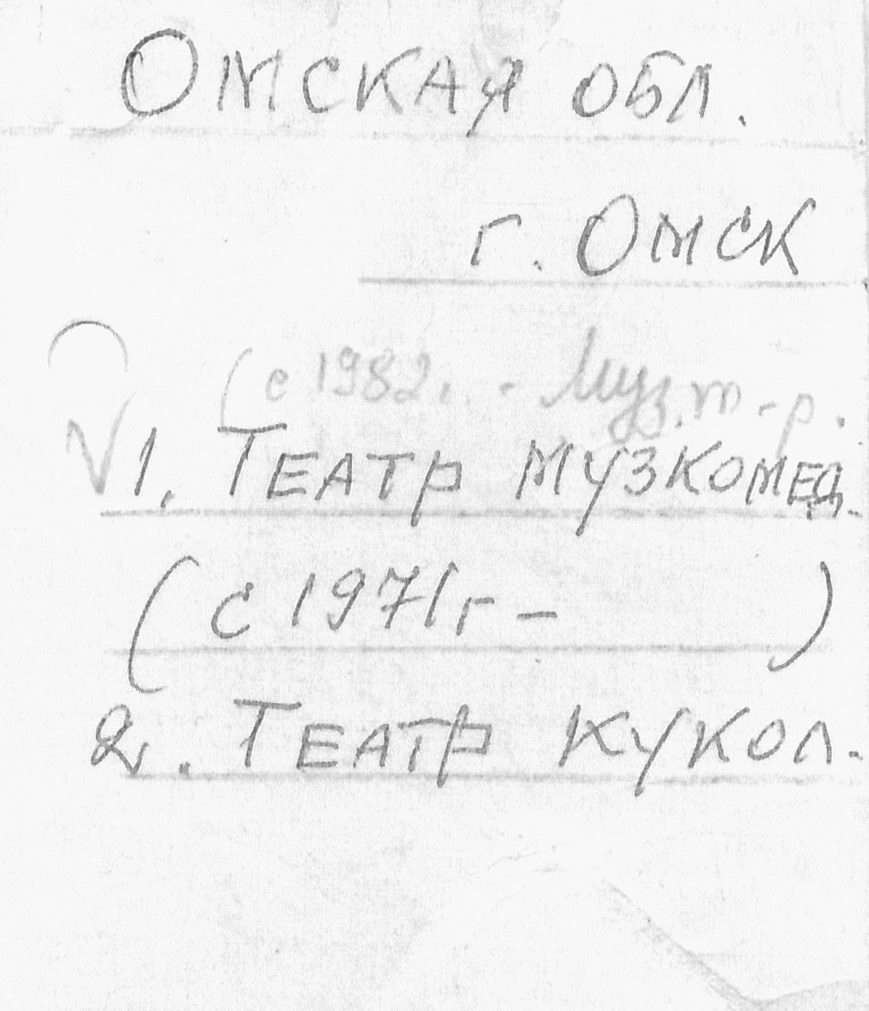 Омская обл.
г. Омск
(с 1982г. - Муз. т-р.
1. Театр музкомед.
(с 1971г - )
2. Театр кукол.